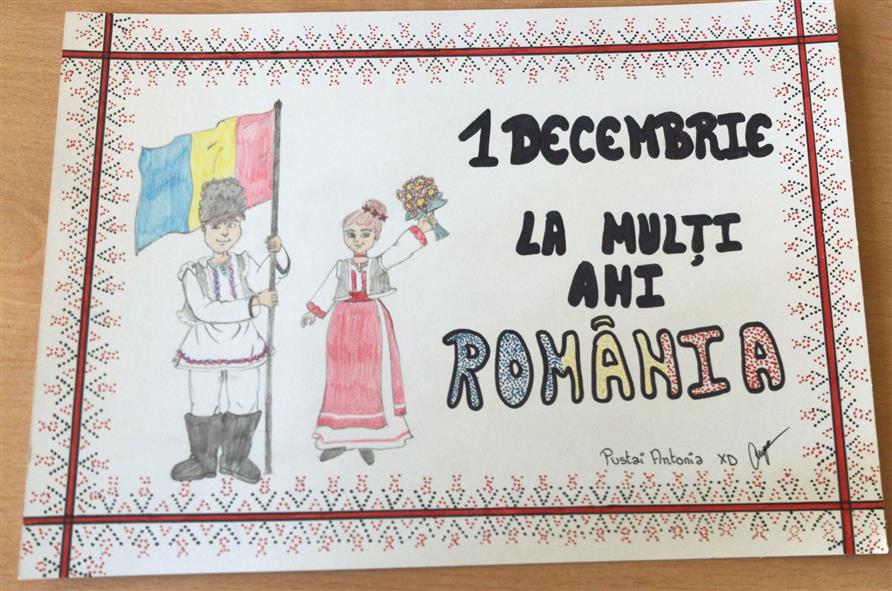 1 DECEMBRIE
LA MULȚI
ANI
ROMÂNIA
Pustai Antonia XD